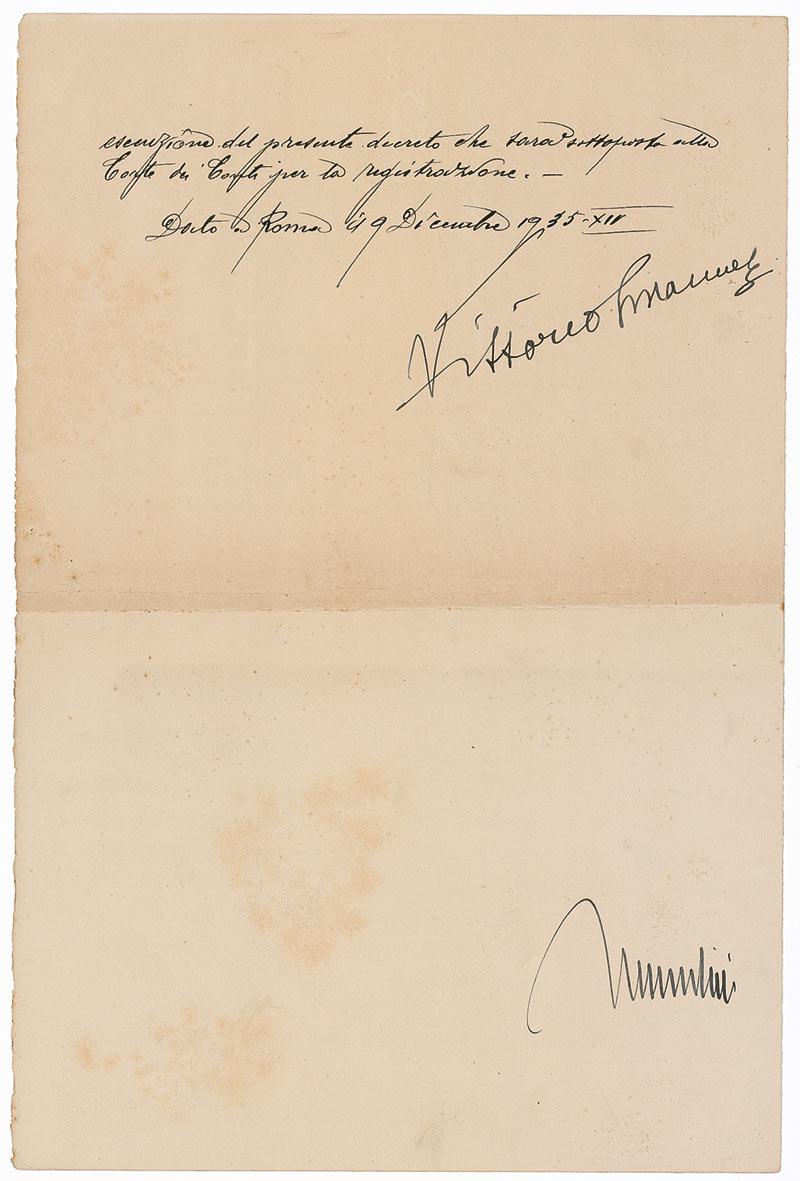 esecuzione del presente decreto che sarà sottoposto alla
Corte dei Conti per la registrazione. —
Dato a Roma 19 Dicembre 1935 - XIV
Vittorio Emanuele
Mussolini